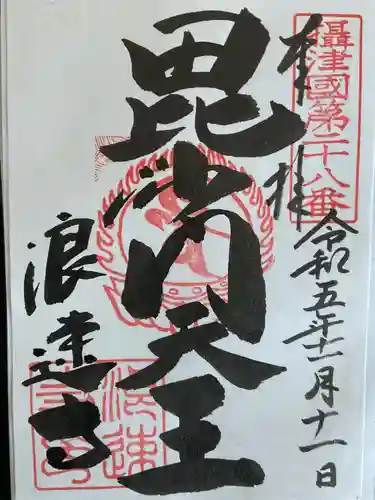 奉拝
攝津國第二十八番
令和五年十一月十一日
毘沙門天王
浪速寺
浪速寺印